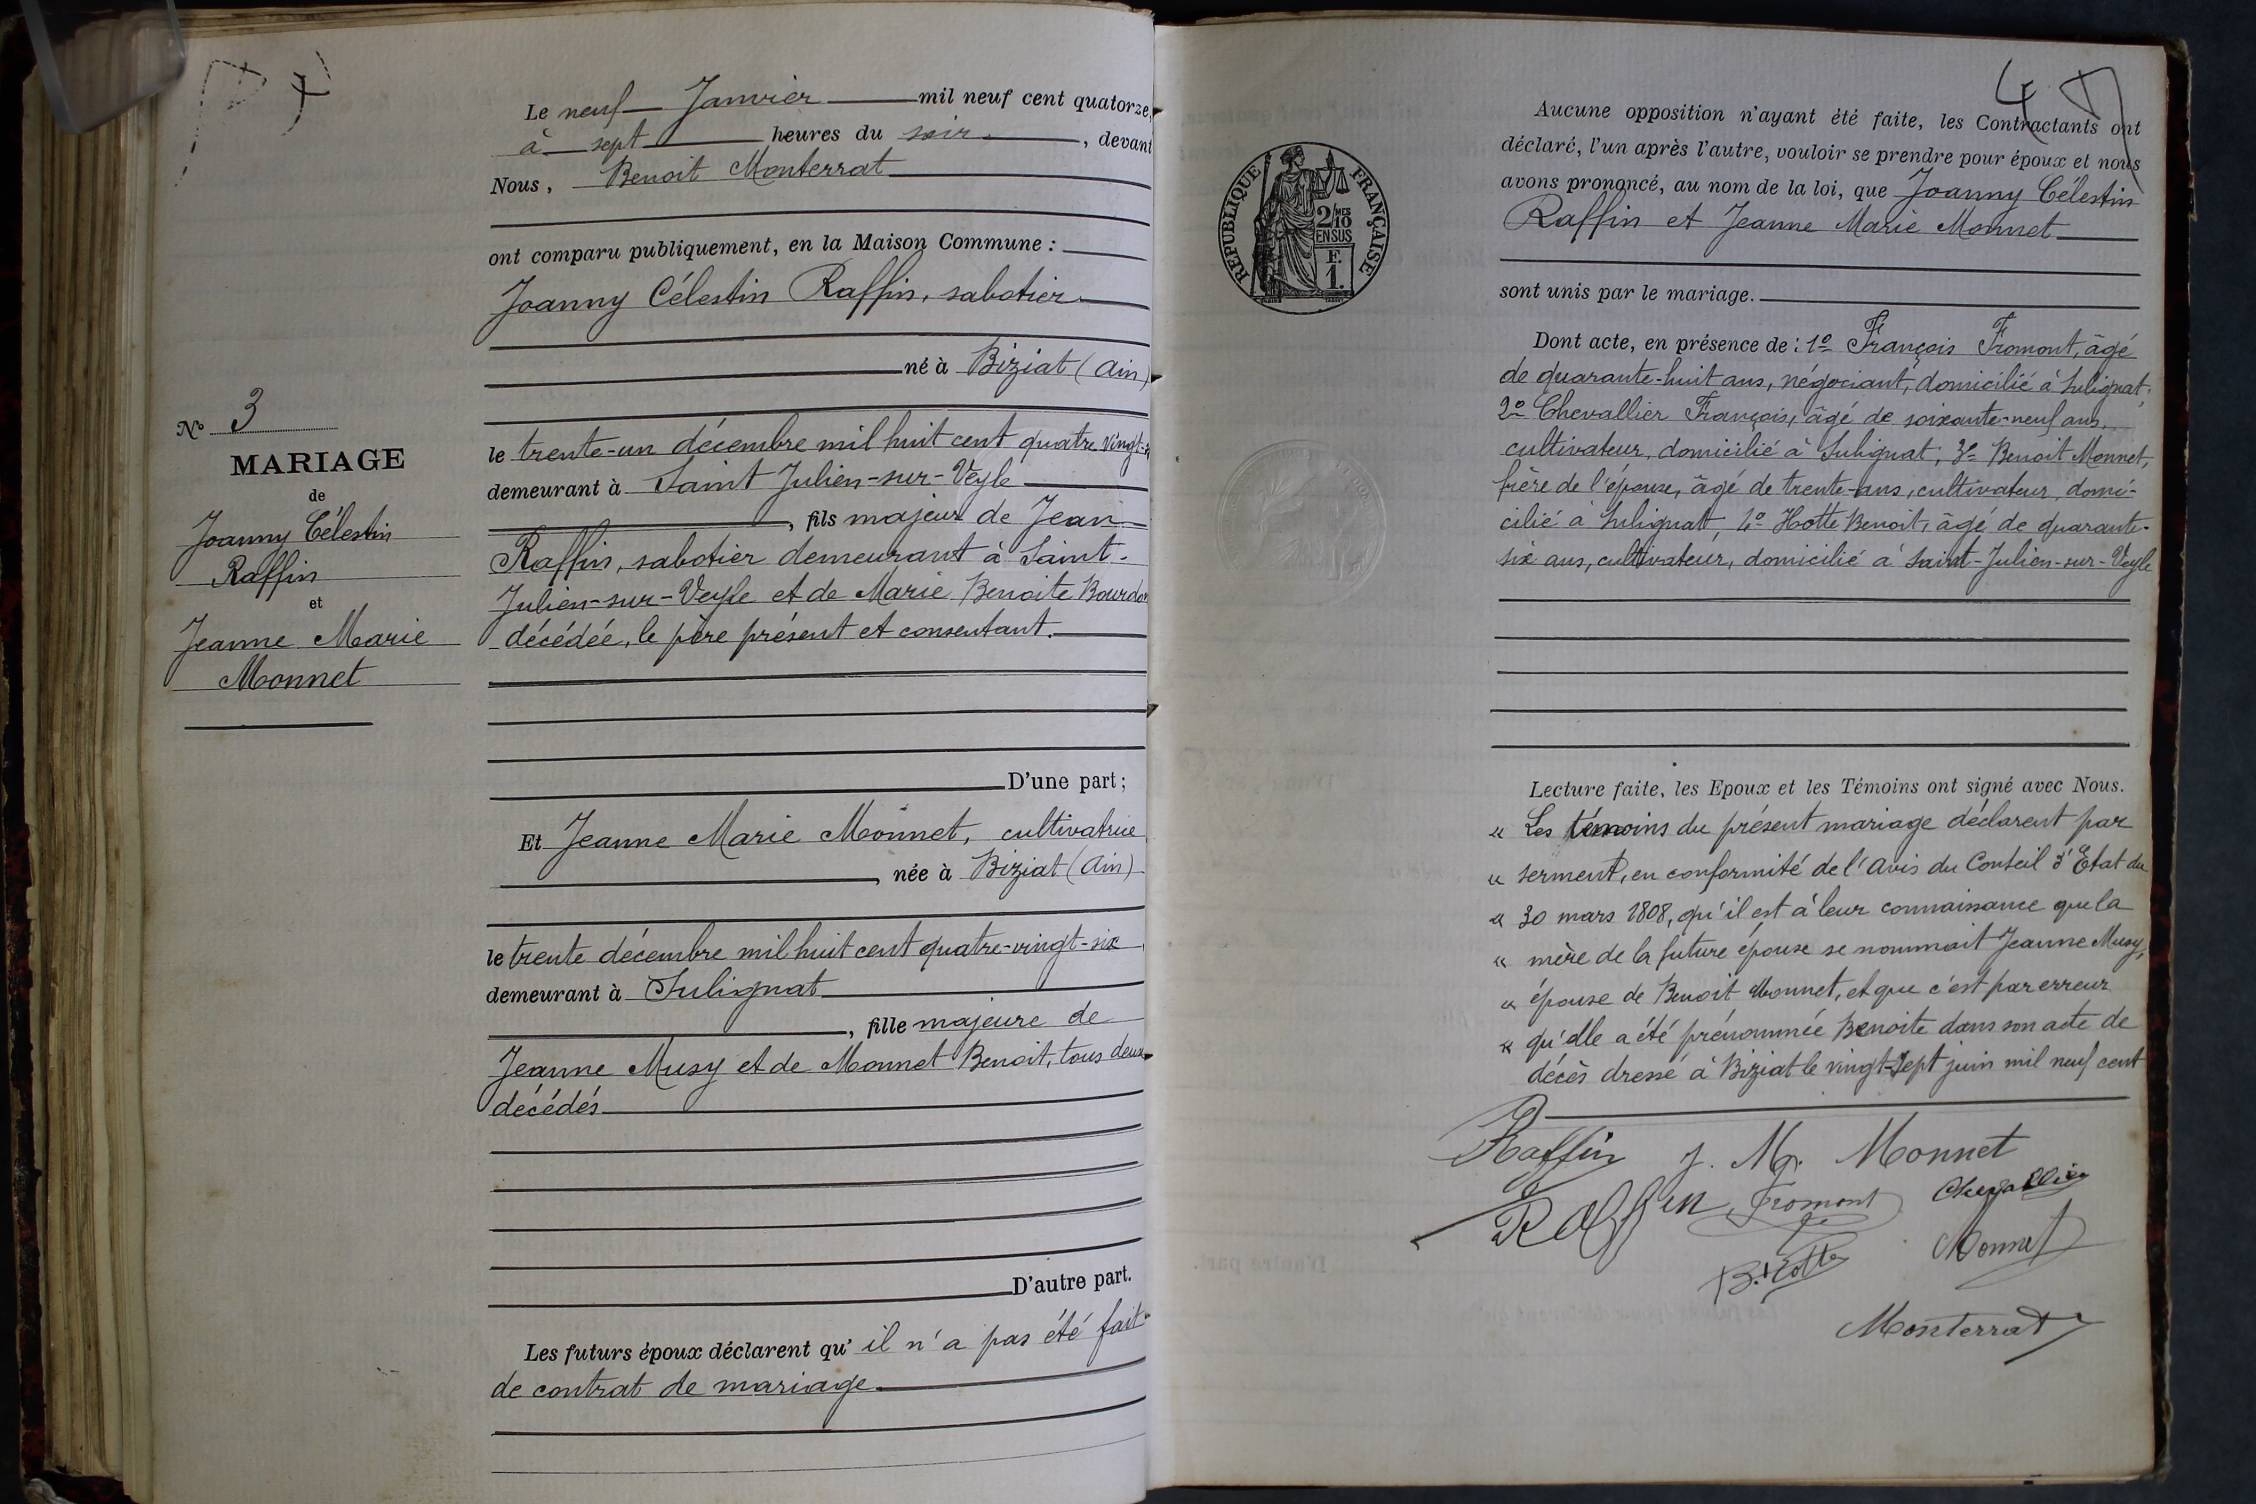 Le neuf Janvier mil neuf cent quatorze,
à sept heures du soir, devant
Nous, Benoit Monterrat
ont comparu publiquement, en la Maison Commune :
Joanny Célestin Raffin, sabotier
né à Biziat (Ain)
le trente-un décembre mil huit cent quatre vingt-
demeurant à Saint Julien-sur-Veyle
, fils majeur de Jean
Raffin, sabotier demeurant à Saint-
Julien-sur-Veyle et de Marie Benoite Bourdon
décédée, le père présent et consentant.
D'une part ;
Et Jeanne Marie Monnet, cultivatrice
, née à Biziat (Ain)
le trente décembre mil huit cent quatre-vingt-six
demeurant à Sulignat
, fille majeure de
Jeanne Musy et de Monnet Benoit, tous deux
décédés
D'autre part.
Les futurs époux déclarent qu'il n'a pas été fait
de contrat de mariage
N° 3
MARIAGE
de
Joanny Célestin
Raffin
et
Jeanne Marie
Monnet
4
RÉPUBLIQUE FRANÇAISE
2/10 MES
EN SUS
F.
1.
Aucune opposition n'ayant été faite, les Contractants ont
déclaré, l'un après l'autre, vouloir se prendre pour époux et nous
avons prononcé, au nom de la loi, que Joanny Célestin
Raffin et Jeanne Marie Monnet
sont unis par le mariage.
Dont acte, en présence de : 1º François Fromont, âgé
de quarante-huit ans, négociant, domicilié à Sulignat ;
2º Chevallier François, âgé de soixante-neuf ans,
cultivateur, domicilié à Sulignat ; 3º Benoit Monnet,
frère de l'épouse, âgé de trente-ans, cultivateur, domi-
cilié à Sulignat, 4º Hotte Benoit, âgé de quarante-
six ans, cultivateur, domicilié à Saint-Julien-sur-Veyle
Lecture faite, les Epoux et les Témoins ont signé avec Nous.
« Les témoins du présent mariage déclarent par
« serment, en conformité de l'Avis du Conseil d'Etat du
« 30 mars 1808, qu'il est à leur connaissance que la
« mère de la future épouse se nommait Jeanne Musy,
« épouse de Benoit Monnet, et que c'est par erreur
« qu'elle a été prénommée Benoite dans son acte de
décès dressé à Biziat le vingt-sept juin mil neuf cent
Raffin J. M. Monnet
Raffin Fromont Chevallier
B. Hotte Monnet
Monterrat